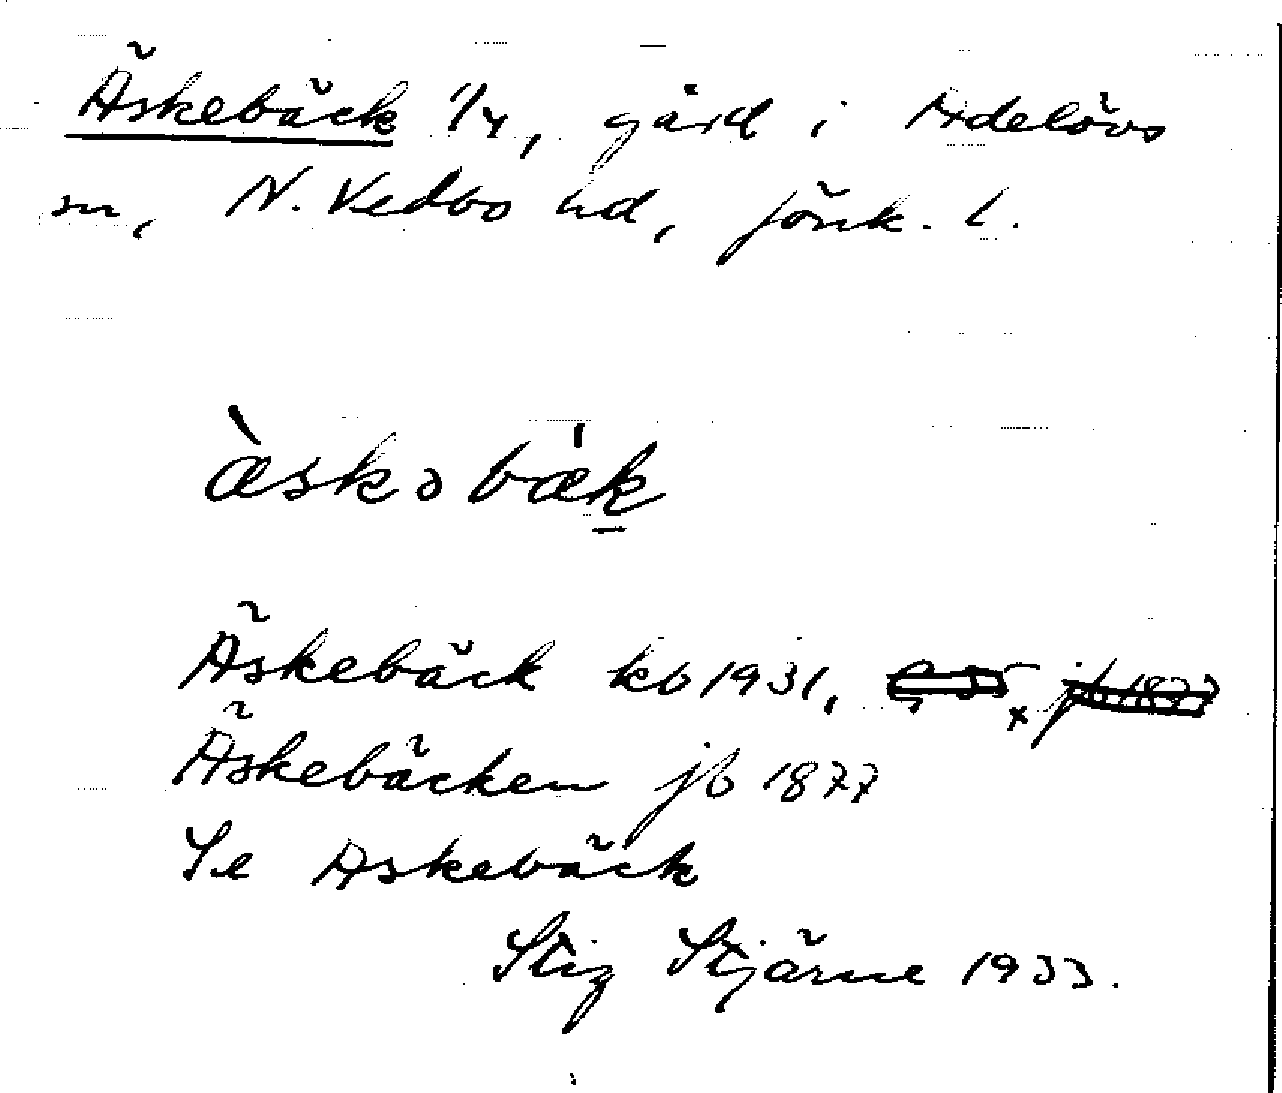 Äskebäck 1/4, gård i Adelövs
sn, N. Vedbo hd, Jönk. l.
æ̀skəbæ̍k̠
Äskebäck kb 1931, jb 1877
Äskebäcken jb 1877
Se Askebäck
Stig Stjärne 1933.